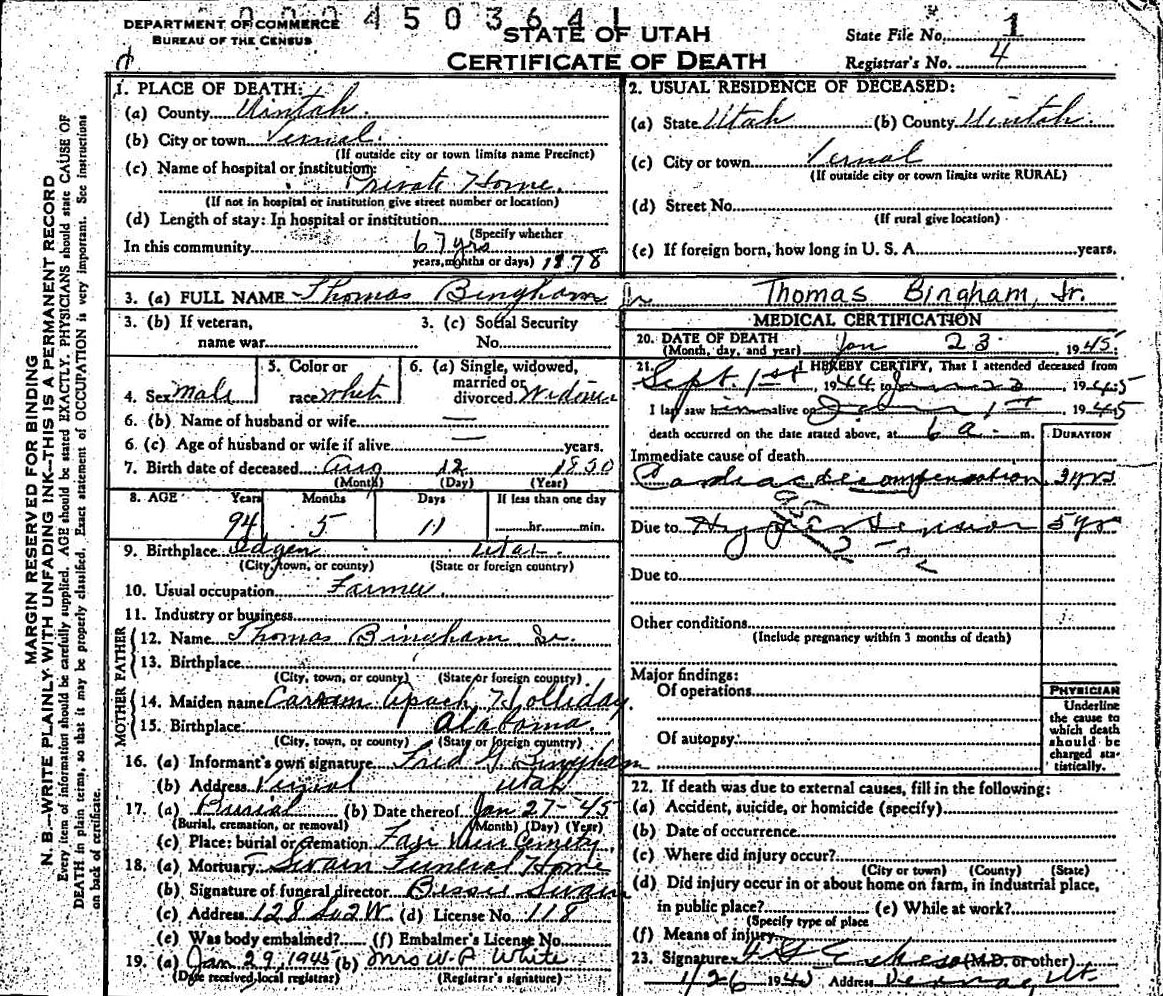 DEPARTMENT OF COMMERCE
BUREAU OF THE CENSUS
4503641
STATE OF UTAH
CERTIFICATE OF DEATH
State File No. 1
Registrar's No. 4
MARGIN RESERVED FOR BINDING
N. B.—WRITE PLAINLY WITH UNFADING INK—THIS IS A PERMANENT RECORD
Every item of information should be carefully supplied. AGE should be stated EXACTLY. PHYSICIANS should state CAUSE OF
DEATH in plain terms, so that it may be properly classified. Exact statement of OCCUPATION is very important. See instructions
on back of certificate.
1. PLACE OF DEATH:
(a) County Uintah
(b) City or town Vernal
(If outside city or town limits name Precinct)
(c) Name of hospital or institution:
Private Home
(If not in hospital or institution give street number or location)
(d) Length of stay: In hospital or institution
(Specify whether
In this community 67 yrs
years, months or days) 1878
2. USUAL RESIDENCE OF DECEASED:
(a) State Utah (b) County Uintah
(c) City or town Vernal
(If outside city or town limits write RURAL)
(d) Street No.
(If rural give location)
(e) If foreign born, how long in U. S. A. years.
3. (a) FULL NAME Thomas Bingham Jr Thomas Bingham, Jr.
3. (b) If veteran,
name war
3. (c) Social Security
No.
4. Sex Male
5. Color or
race white
6. (a) Single, widowed,
married or
divorced Widower
6. (b) Name of husband or wife —
6. (c) Age of husband or wife if alive — years.
7. Birth date of deceased Aug 12 1850
(Month) (Day) (Year)
8. AGE Years Months Days If less than one day
94 5 11 hr. min.
9. Birthplace Ogden Utah
(City, town, or county) (State or foreign country)
10. Usual occupation Farmer
11. Industry or business
FATHER
12. Name Thomas Bingham Sr.
13. Birthplace
(City, town, or county) (State or foreign country)
MOTHER
14. Maiden name Holliday
15. Birthplace Alabama
(City, town, or county) (State or foreign country)
16. (a) Informant's own signature Fred G. Bingham
(b) Address Vernal Utah
17. (a) Burial (b) Date thereof Jan 27-45
(Burial, cremation, or removal) (Month) (Day) (Year)
(c) Place: burial or cremation
18. (a) Mortuary Swain Funeral Home
(b) Signature of funeral director Bessie Swain
(c) Address 128 So 2 W (d) License No. 118
(e) Was body embalmed? (f) Embalmer's License No.
19. (a) Jan 29, 1945 (b) Mrs W. P. White
(Date received local registrar) (Registrar's signature)
MEDICAL CERTIFICATION
20. DATE OF DEATH
(Month, day, and year) Jan 23 1945
21. I HEREBY CERTIFY, That I attended deceased from
Sept. 1st 1944 to 1945
I last saw him alive on 1st 1945
death occurred on the date stated above, at 6 a. m. DURATION
Immediate cause of death
Cardiac decompensation 3 yrs
Due to Hypertension 5 yr
Due to
Other conditions
(Include pregnancy within 3 months of death)
Major findings:
Of operations
Of autopsy
PHYSICIAN
Underline
the cause to
which death
should be
charged sta-
tistically.
22. If death was due to external causes, fill in the following:
(a) Accident, suicide, or homicide (specify)
(b) Date of occurrence
(c) Where did injury occur?
(City or town) (County) (State)
(d) Did injury occur in or about home on farm, in industrial place,
in public place? (e) While at work?
(Specify type of place
(f) Means of injury
23. Signature (M.D. or other)
1/26 1945 Address Vernal, Ut